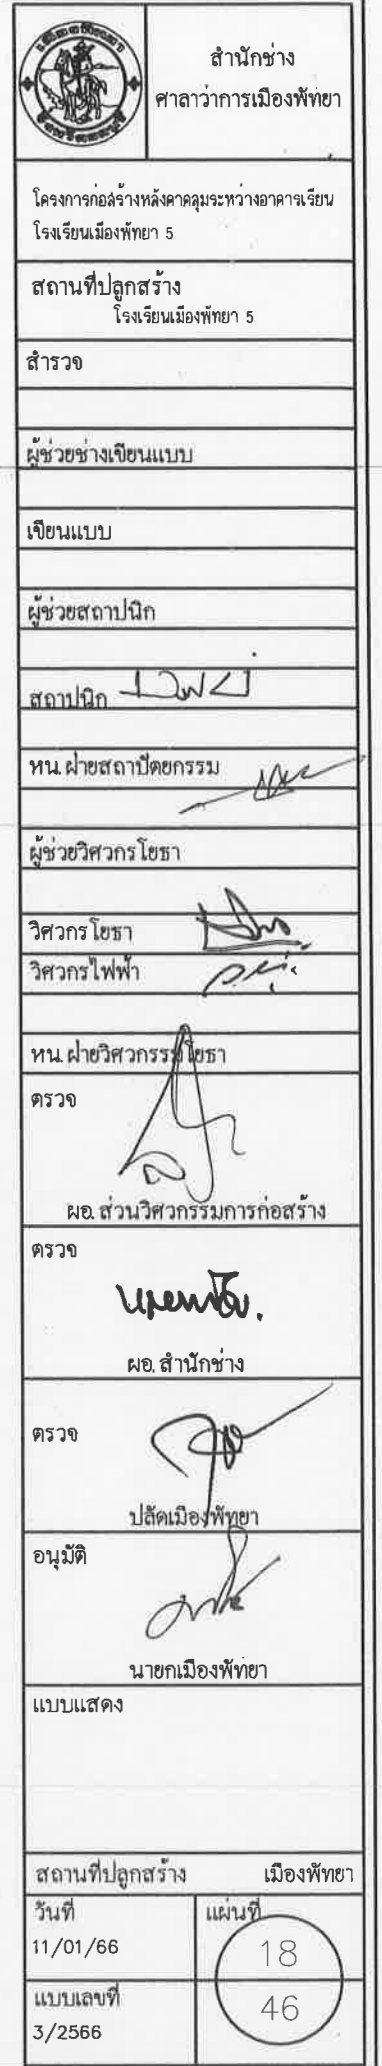 สำนักช่าง
ศาลาว่าการเมืองพัทยา
โครงการก่อสร้างหลังคาคลุมระหว่างอาคารเรียน
โรงเรียนเมืองพัทยา 5
สถานที่ปลูกสร้าง
โรงเรียนเมืองพัทยา 5
สำรวจ
ผู้ช่วยช่างเขียนแบบ
เขียนแบบ
ผู้ช่วยสถาปนิก
สถาปนิก
หน.ฝ่ายสถาปัตยกรรม
ผู้ช่วยวิศวกรโยธา
วิศวกรโยธา
วิศวกรไฟฟ้า
หน.ฝ่ายวิศวกรรมโยธา
ตรวจ
ผอ.ส่วนวิศวกรรมการก่อสร้าง
ตรวจ
ผอ.สำนักช่าง
ตรวจ
ปลัดเมืองพัทยา
อนุมัติ
นายกเมืองพัทยา
แบบแสดง
สถานที่ปลูกสร้าง เมืองพัทยา
วันที่ แผ่นที่
11/01/66 18
แบบเลขที่ 46
3/2566